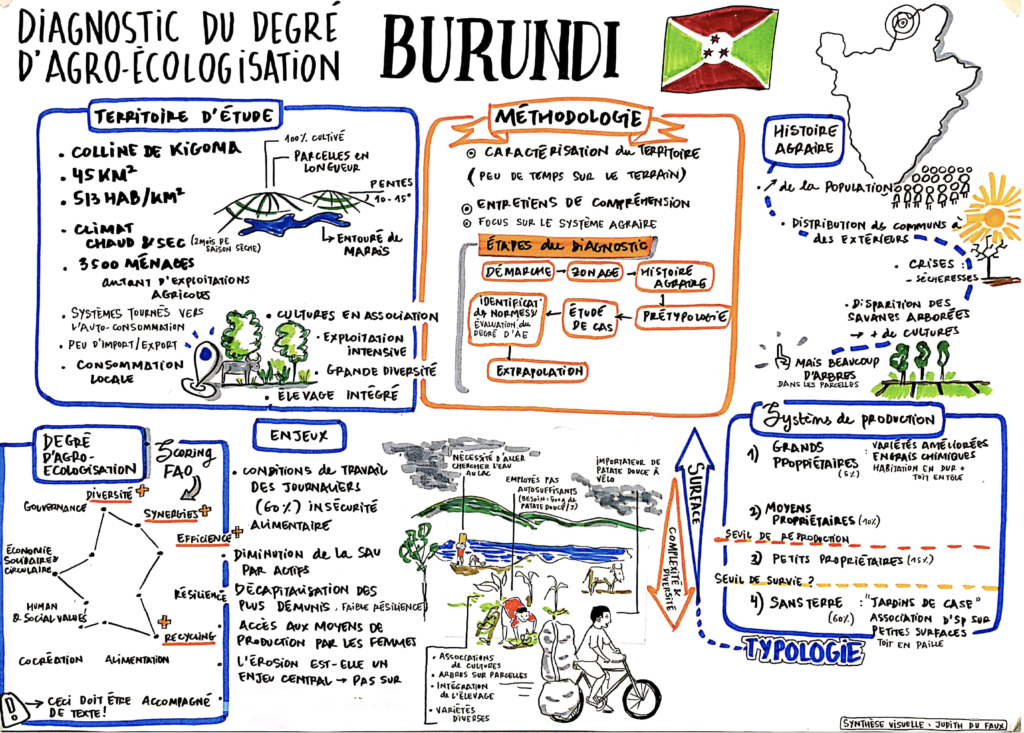 DIAGNOSTIC DU DEGRÉ
D'AGRO-ÉCOLOGISATION
BURUNDI
TERRITOIRE D'ÉTUDE
• COLLINE DE KIGOMA
• 45 KM²
• 513 HAB/KM²
• CLIMAT
CHAUD & SEC (2 MOIS DE
SAISON SÈCHE)
• 3500 MÉNAGES
AUTANT D'EXPLOITATIONS
AGRICOLES
• SYSTÈMES TOURNÉS VERS
L'AUTO-CONSOMMATION
• PEU D'IMPORT/EXPORT
• CONSOMMATION
LOCALE
100% CULTIVÉ
PARCELLES EN
LONGUEUR
PENTES
10-15°
ENTOURÉ DE
MARAIS
• CULTURES EN ASSOCIATION
• EXPLOITATION
INTENSIVE
• GRANDE DIVERSITÉ
• ÉLEVAGE INTÉGRÉ
MÉTHODOLOGIE
CARACTÉRISATION DU TERRITOIRE
(PEU DE TEMPS SUR LE TERRAIN)
ENTRETIENS DE COMPRÉHENSION
FOCUS SUR LE SYSTÈME AGRAIRE
ÉTAPES DU DIAGNOSTIC
DÉMARCHE → ZONAGE → HISTOIRE
AGRAIRE
PRÉTYPOLOGIE
ÉTUDE
DE CAS
IDENTIFICAT°
DES NORMES/
ÉVALUATION DU
DEGRÉ D'AE
EXTRAPOLATION
HISTOIRE
AGRAIRE
• ↗ DE LA POPULATION
• DISTRIBUTION DE COMMUNS À
DES EXTÉRIEURS
• CRISES :
SÉCHERESSES
• DISPARITION DES
SAVANES ARBORÉES
→ + DE CULTURES
MAIS BEAUCOUP
D'ARBRES
DANS LES PARCELLES
DEGRÉ
D'AGRO-
ECOLOGISATION
SCORING
FAO
DIVERSITÉ +
SYNERGIES +
EFFICIENCE +
RÉSILIENCE
+
RECYCLING
ALIMENTATION
COCRÉATION
HUMAN
& SOCIAL VALUES
ÉCONOMIE
SOLIDAIRE &
CIRCULAIRE
GOUVERNANCE
! → CECI DOIT ÊTRE ACCOMPAGNÉ
DE TEXTE!
ENJEUX
• CONDITIONS DE TRAVAIL
DES JOURNALIERS
(60%) INSÉCURITÉ
ALIMENTAIRE
• DIMINUTION DE LA SAU
PAR ACTIFS
• DÉCAPITALISATION DES
PLUS DÉMUNIS, FAIBLE RÉSILIENCE
• ACCÈS AUX MOYENS DE
PRODUCTION PAR LES FEMMES
• L'ÉROSION EST-ELLE UN
ENJEU CENTRAL → PAS SUR
NÉCESSITÉ D'ALLER
CHERCHER L'EAU
AU LAC
EMPLOYÉS PAS
AUTOSUFFISANTS
PATATE DOUCE
IMPORTATEUR DE
PATATE DOUCE À
VÉLO
• ASSOCIATIONS
DE CULTURES
• ARBRES SUR PARCELLES
• INTÉGRATION
DE L'ÉLEVAGE
• VARIÉTÉS
DIVERSES
SURFACE
COMPLEXITÉ &
DIVERSITÉ
Système de production
1) GRANDS
PROPRIÉTAIRES
VARIÉTÉS AMÉLIORÉES
ENGRAIS CHIMIQUES
HABITATION EN DUR +
TOIT EN TÔLE
2) MOYENS
PROPRIÉTAIRES (10%)
SEUIL DE REPRODUCTION
3) PETITS PROPRIÉTAIRES (15%)
SEUIL DE SURVIE ?
4) SANS TERRE : "JARDINS DE CASE"
(60%) ASSOCIATION D'SP SUR
PETITES SURFACES
TOIT EN PAILLE
TYPOLOGIE
SYNTHÈSE VISUELLE : JUDITH DU FAUX